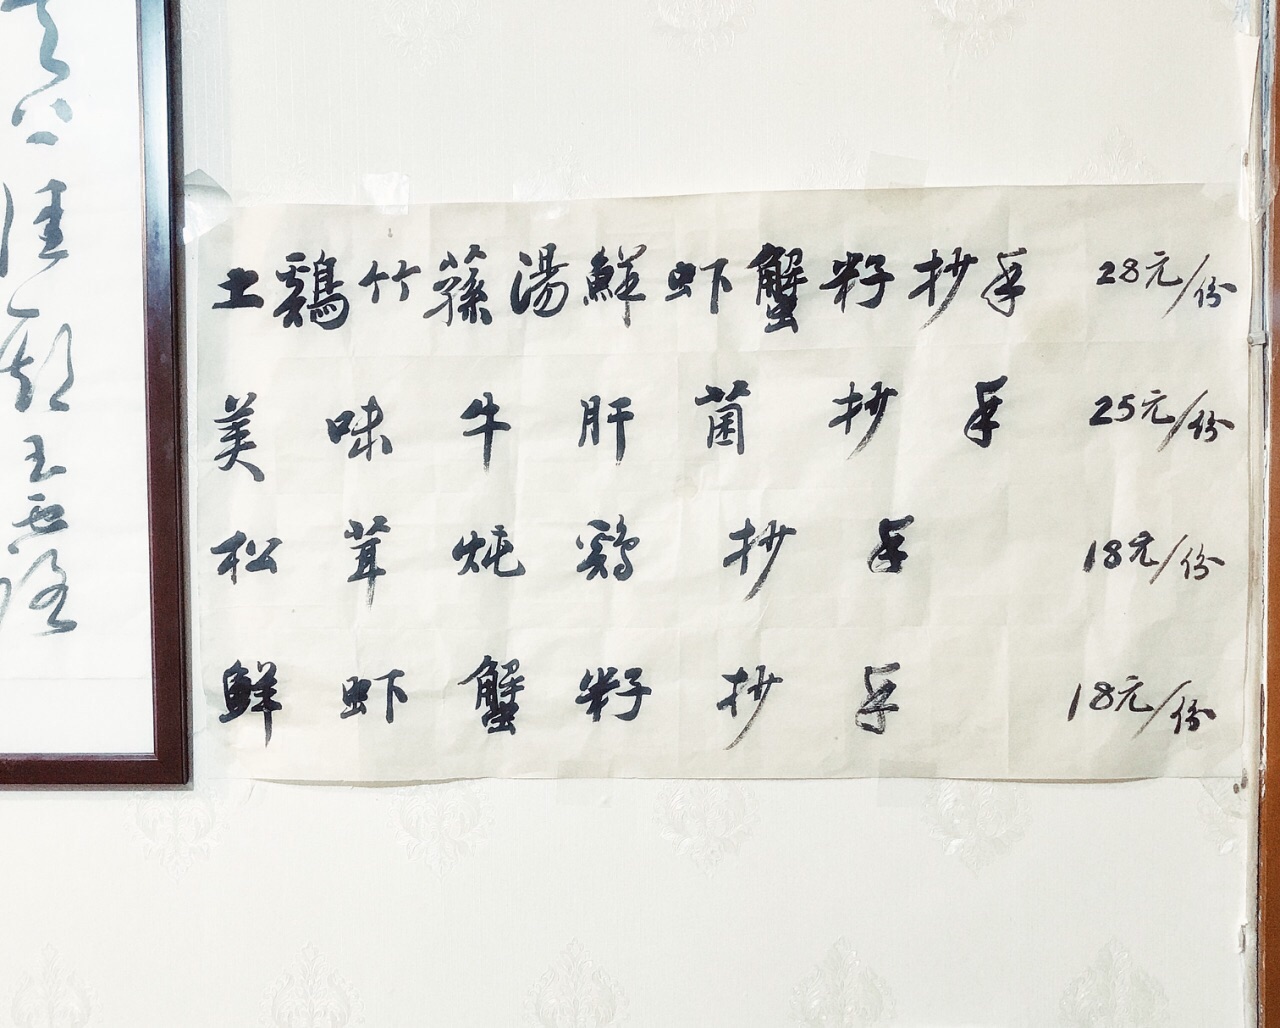 土鷄竹蓀湯鮮虾蟹籽抄手 28元/份
美味牛肝菌抄手 25元/份
松茸炖鷄抄手 18元/份
鮮虾蟹籽抄手 18元/份